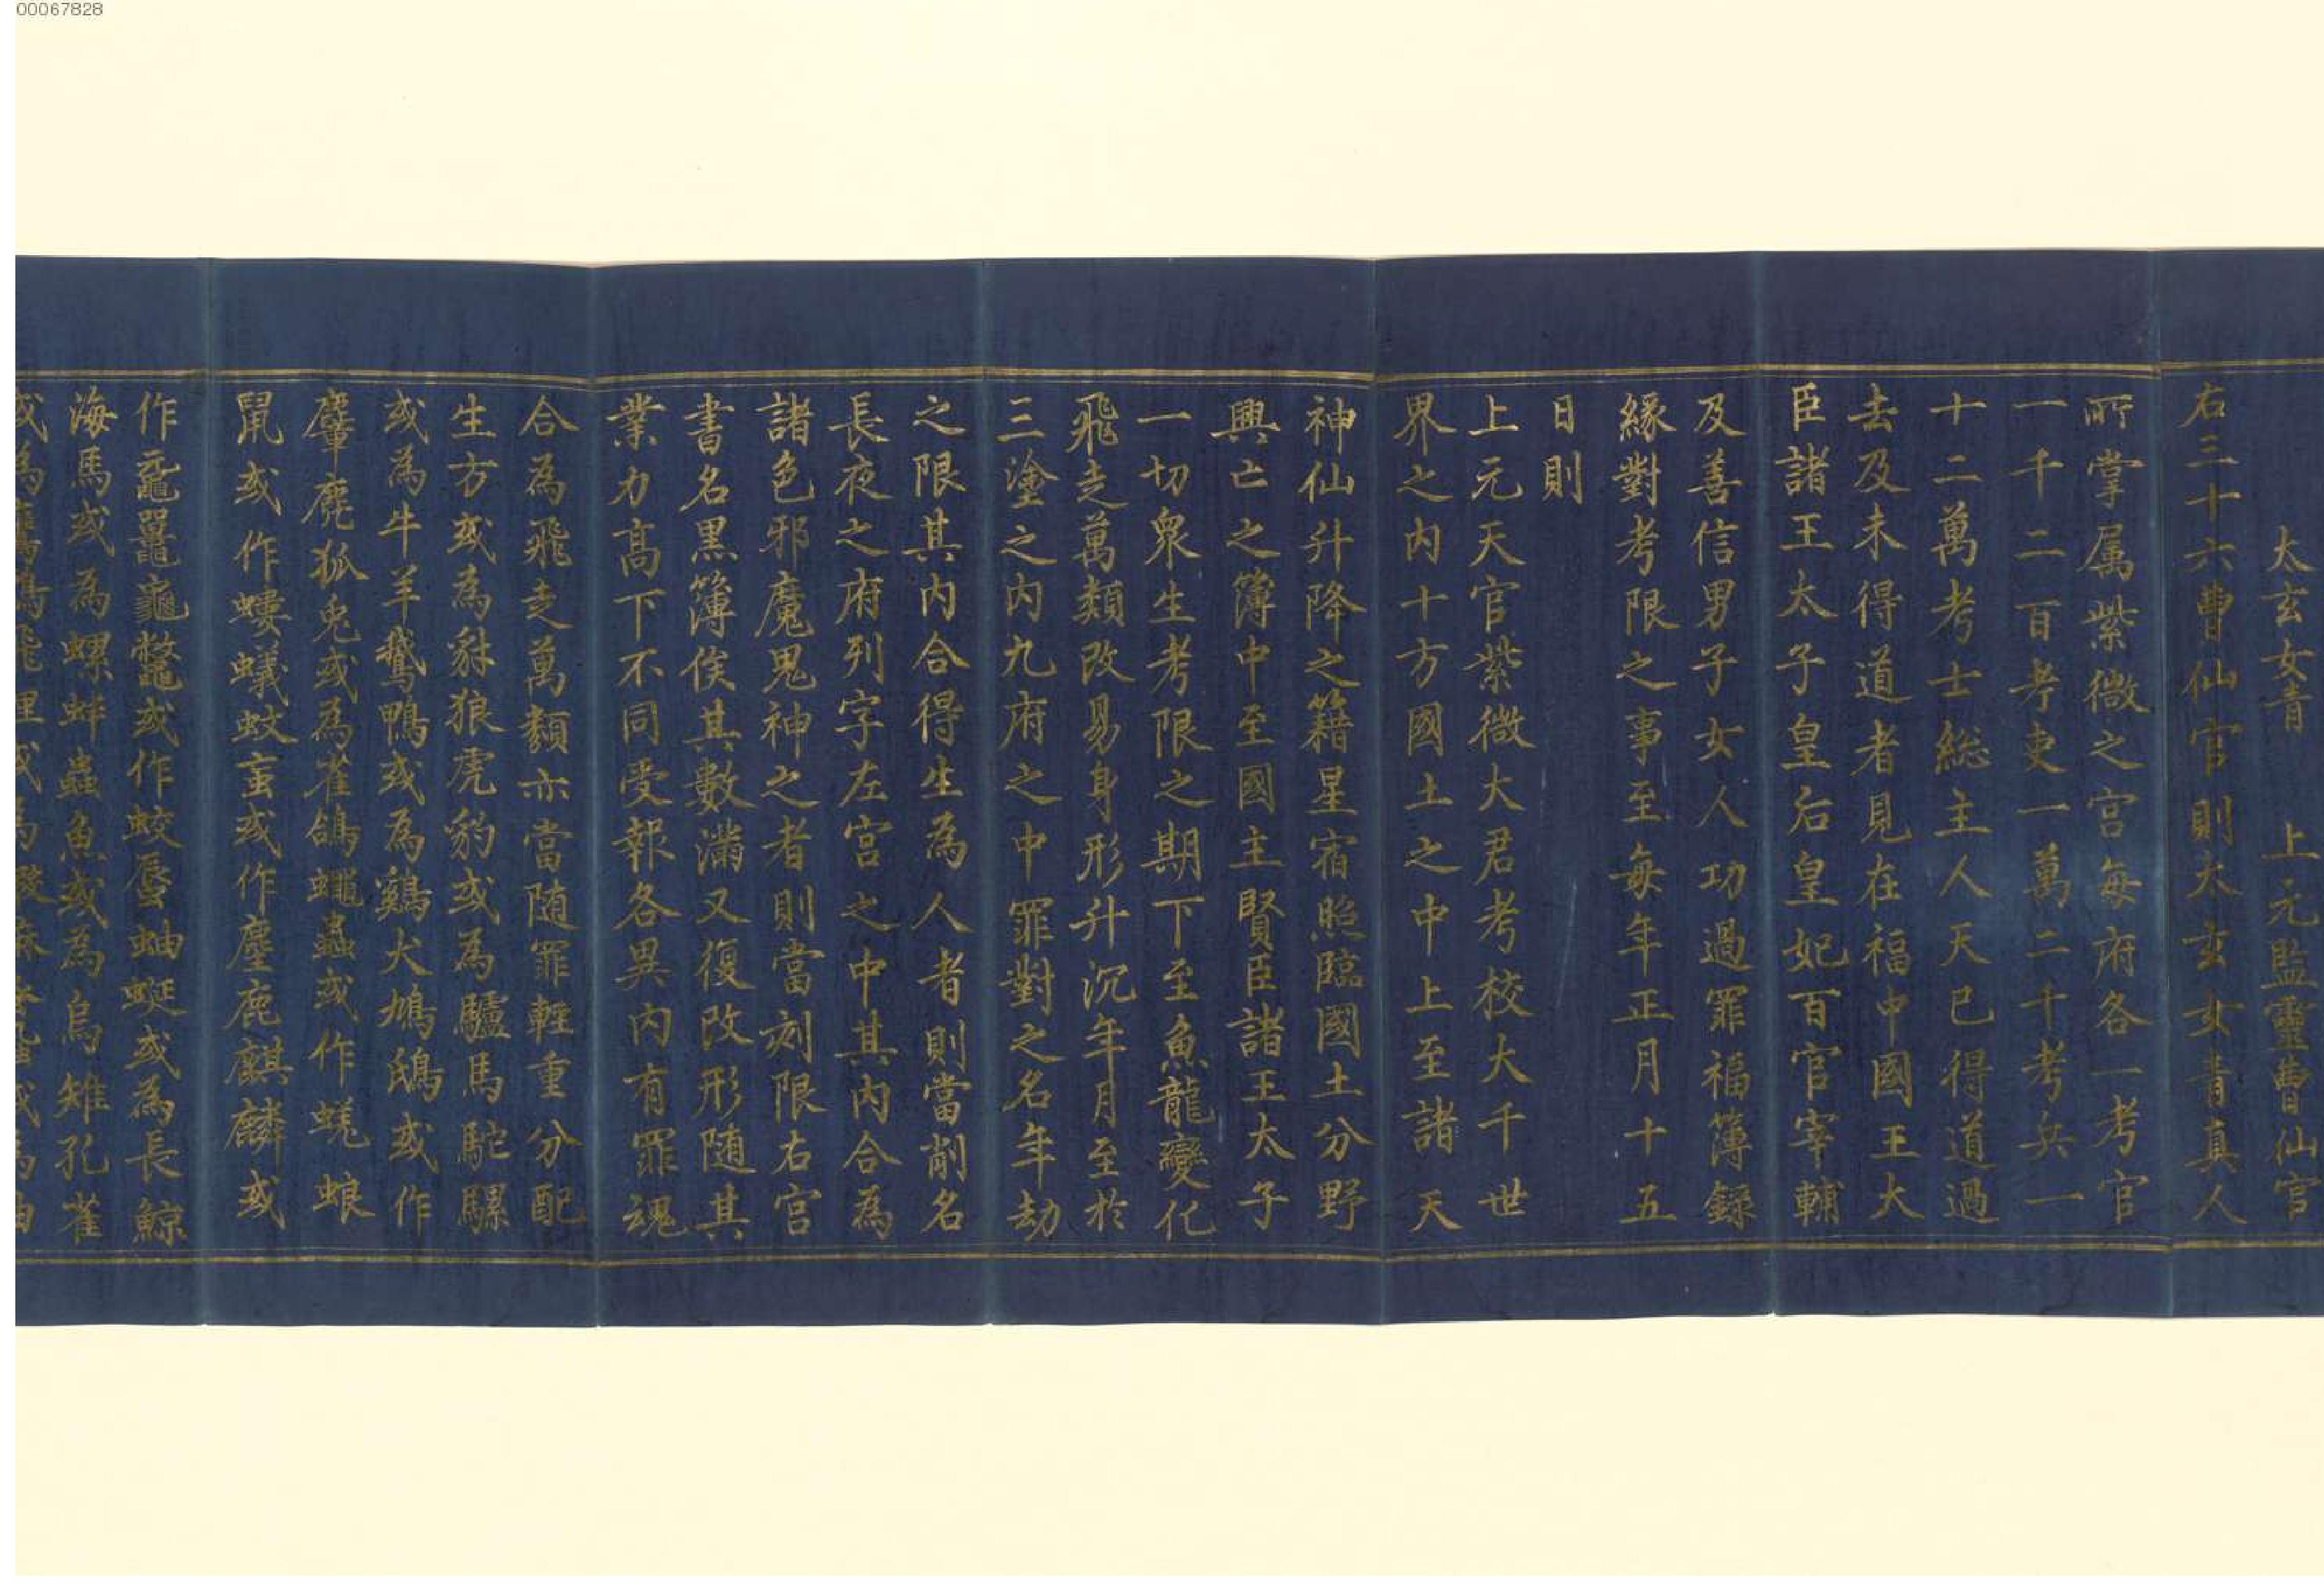 00067828
太玄女青 上元監靈曹仙官
右三十六曹仙官則太玄女青真人
所掌属紫微之宫每府各一考官
一千二百考吏一萬二千考兵一
十二萬考士総主人天已得道過
去及未得道者見在福中國王大
臣諸王太子皇后皇妃百官宰輔
及善信男子女人功過罪福簿録
緣對考限之事至每年正月十五
日則
上元天官紫微大君考校大千世
界之内十方國土之中上至諸天
神仙升降之籍星宿照臨國土分野
興亡之簿中至國主賢臣諸王太子
一切衆生考限之期下至魚龍變化
飛走萬類改易身形升沉年月至於
三塗之内九府之中罪對之名年劫
之限其内合得生為人者則當削名
長夜之府列字左宫之中其内合為
諸色邪魔鬼神之者則當刻限右宫
書名黒簿俟其數滿又復改形随其
業力髙下不同受報各異内有罪魂
合為飛走萬類亦當随罪輕重分配
生方或為豺狼虎豹或為驢馬駝騾
或為牛羊鵝鴨或為鷄犬鳩鴟或作
麞鹿狐兎或為雀鴿蠅蟲或作蜣蜋
鼠或作螻蟻蚊䖟或作麈鹿麒麟或
作黿鼉龜鼈或作蛟蜃蚰蜒或為長鯨
海馬或為螺蚌蟲魚或為烏雉孔雀
或為